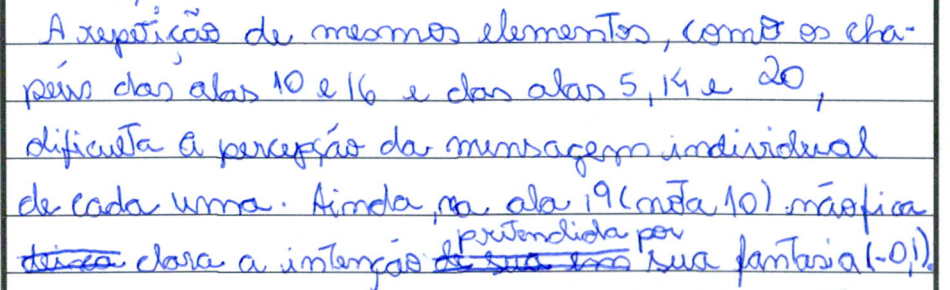 A repetição de mesmos elementos, como os cha-
péus das alas 10 e 16 e das alas 5, 14 e 20,
dificulta a percepção da mensagem individual
de cada uma. Ainda, na ala 19 (nota 10) não fica
clara a intenção pretendida por sua fantasia (-0,1).